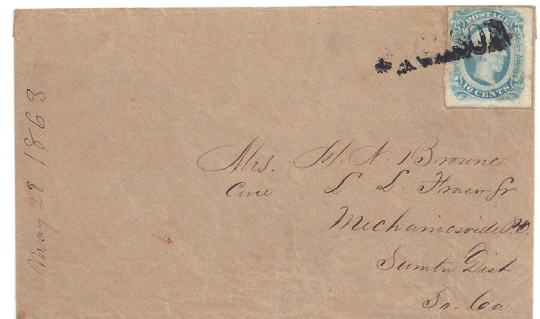 POSTAGE
10 CENTS
May 29 1863
Mrs. H. N. Browne
Care L. L. Fraser Jr
Mechanicsville P.O.
Sumter Dist
So. Ca